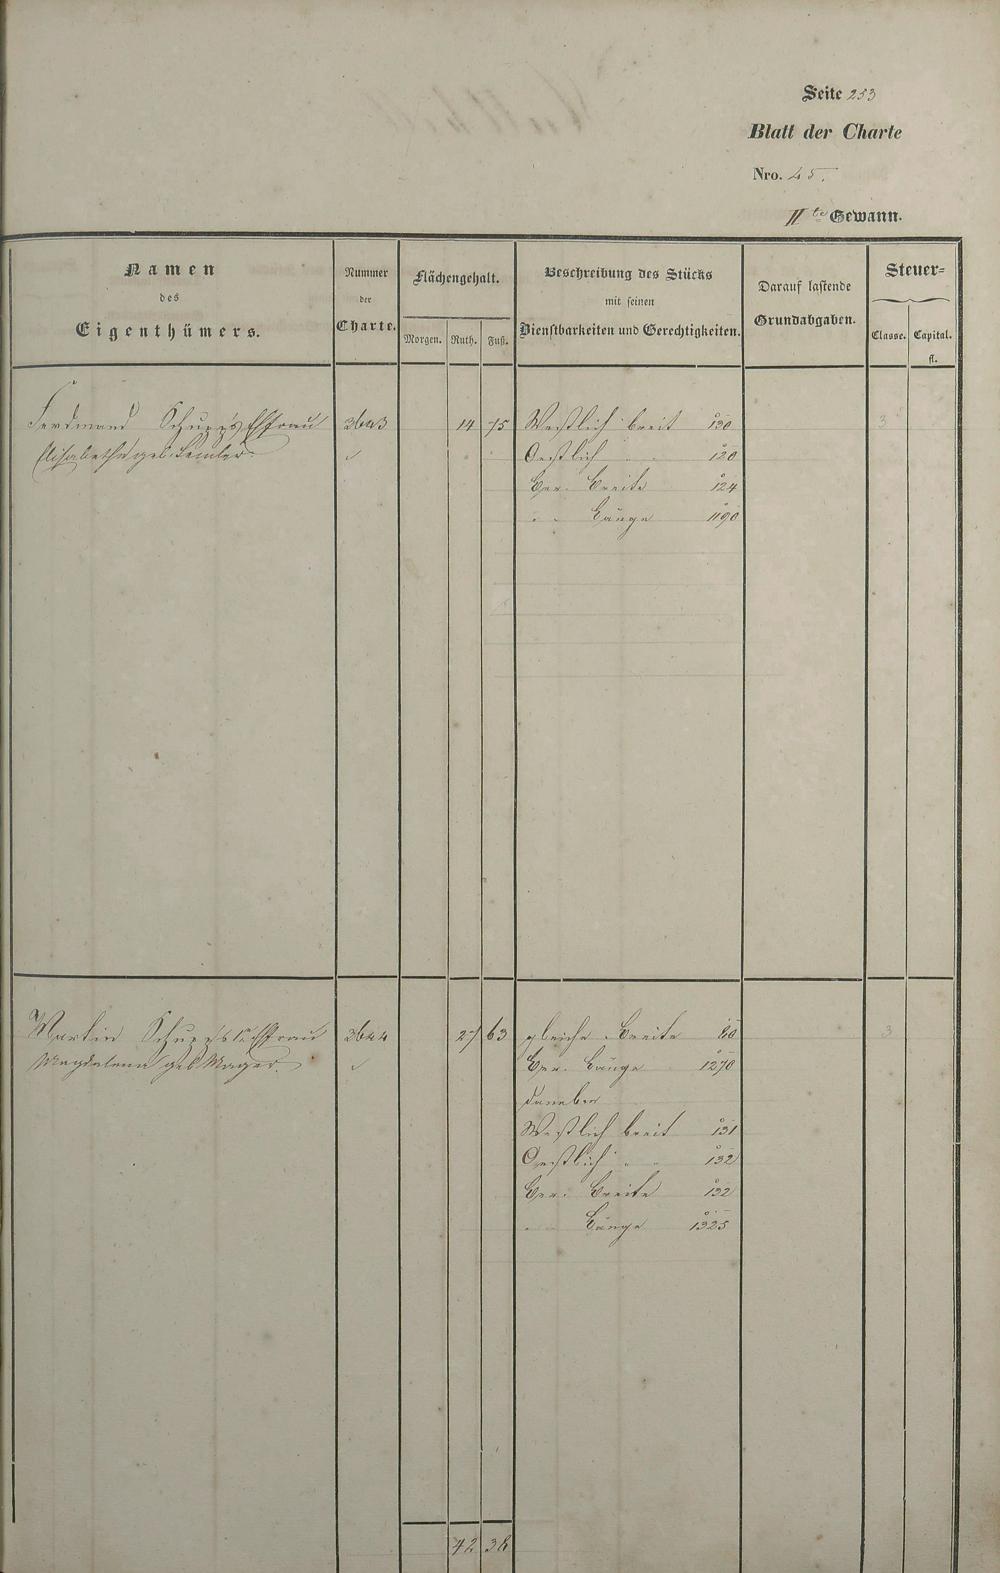 Seite 253
Blatt der Charte
Nro. 45.
IIte Gewann.
Namen
des
Eigenthümers.
Nummer
der
Charte.
Flächengehalt.
Morgen. Ruth. Fuß.
Beschreibung des Stücks
mit seinen
Dienstbarkeiten und Gerechtigkeiten.
Darauf lastende
Grundabgaben.
Steuer=
Classe. Capital.
fl.
Ferdinand Schupp's Ehfrau 3643 14 75 Westlich breit 130 3
Elisabetha geb. Oestlich " " 120
Ber. Breite 124
" " Länge 1190
Martin Schupp's Ehfrau 3644 27 63 gleiche Breite 80 3
Magdalena geb. Mager. Ber. Länge 1270
daneben
Westlich breit 131
Oestlich " " 132
Ber. Breite 132
" " Länge 1325
42 38